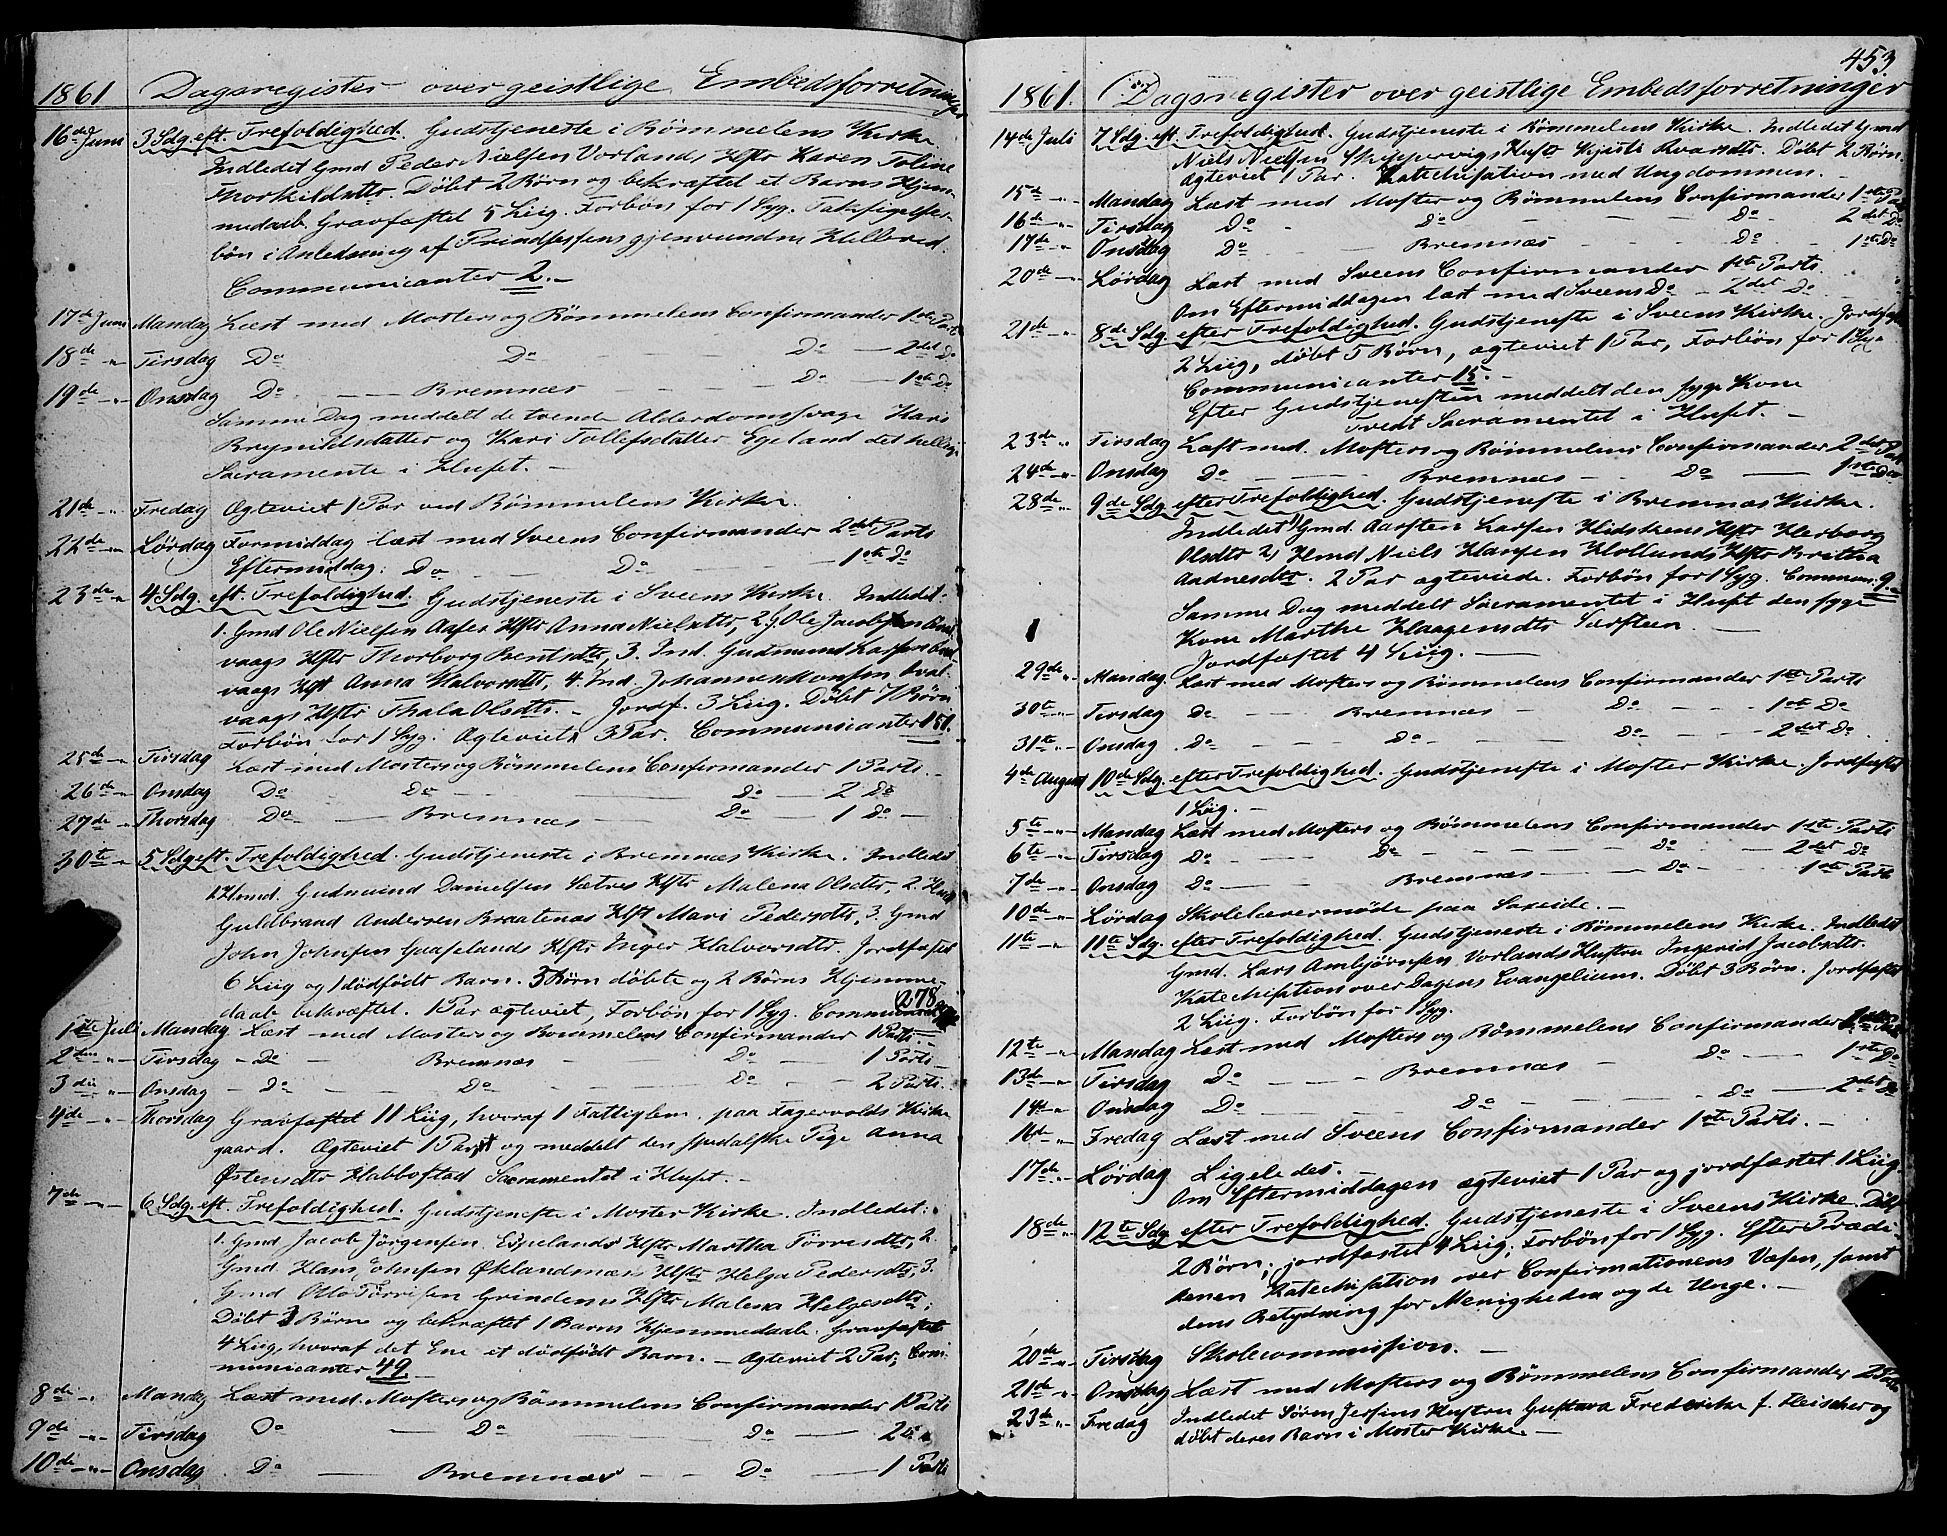 1861 Dagsregister over geistlige Embedsforretninger
16de Juni 3 Sdg. eft. Trefoldighed. Gudstjeneste i Bømmelens Kirke.
Indledet Gmd Peder Nielsen Vorlands Hstr Karen Toline
Thorkildsdttr. Døbt 2 Børn og bekræftet et Barns Hjem-
medaab. Gravfæstet 5 Liig. Forbøn for 1 Syg. Taksigelses-
bøn i Anledning af Prindsessens gjenvundne Helbred.
Communicanter 2. -
17de Juni Mandag Læst med Mosters og Bømmelens Confirmander 1ste Parti
18de " Tirsdag Do Do Do - 2det Do
19de - " - Onsdag Do - Bremnæs - - - Do - 1ste Do
Samme Dag meddelt de tvende Alderdomssvage Kari
Brynildsdatter og Kari Tollefsdatter Egeland det hellige
Sacramente i Huset. -
21de - " Fredag Ægteviet 1 Par ved Bømmelens Kirke.
22de - " Lørdag Formiddag læst med Sveens Confirmander 2det Parti
Eftermiddag: Do - Do - 1ste Do
23de - " 4 Sdg. eft. Trefoldighed. Gudstjeneste i Sveens Kirke. Indledet.
1. Gmd Ole Nielsen Hstr Anna Nielsdttr, 2. Ole Jacobsen
vaags Hstr Thorborg Bentsdttr, 3. Ind. Gudmund Larsen
vaags Hst Anna Halvorsdttr, 4. Ind. Johannes Hansen
vaags Hstr Thala Olsdttr. - Jordf. 3 Liig. Døbt 7 Børn
Forbøn for 1 Syg. Ægteviet 3 Par. Communicanter 151.
25de - " Tirsdag Læst med Mosters og Bømmelens Confirmander 1 Parti. -
26de - " Onsdag Do Do - Do - 2 Do
27de - " Thorsdag Do - Bremnæs - Do - 1 Do -
30te - " 5 Sdg. eft. Trefoldighed. Gudstjeneste i Bremnæs Kirke. Indledet
1. Hmd. Gudmund Danielsen Sætres Hstr Malena Olsdttr, 2. Hmd
Guldbrand Andersen Braatenas Hst Mari Pedersdttr, 3. Gmd
John Johnsen Hstr Inger Halvorsdttr. Jordfæstet
6 Liig og 1 dødfødt Barn. 3 Børn døbte og 2 Børns Hjemme-
daab bekræftet. 1 Par ægteviet, Forbøn for 1 Syg. Communicanter 278
1ste Juli Mandag Læst med Mosters og Bømmelens Confirmander 1 Parti. -
2den - " - Tirsdag - Do - Bremnæs - Do - 1 Parti -
3die " - Onsdag - Do - Do - Do - - 2 Parti.
4de - " - Thorsdag Gravfæstet 11 Liig, hvoraf 1 Fattiglem paa Fagervolds Kirke
gaard. Ægteviet 1 Par og meddelt den spedalske Pige Anna
Østensdttr Habbostad Sacramentet i Huset. -
7de - " - 6 Sdg. eft. Trefoldighed. Gudstjeneste i Moster Kirke. Indledet:
1. Gmd Jacob Jørgensen Espelands Hstr Martha Torresdttr, 2.
Gmd. Hans Johnsen Øklandsnæs Hstr Helga Pedersdttr, 3.
Gmd Otto Tørrisen Grindenes Hstr Malena Helgesdttr.
Døbt 3 Børn og bekræftet 1 Barns Hjemmedaab. Gravfæstet
4 Liig, hvoraf det Ene et dødfødt Barn. - Ægteviet 2 Par, Com-
municanter 49.
8de - " Mandag Læst med Mosters og Bømmelens Confirmander 1 Parti
9de - " - Tirsdag Do - Do - Do - 2
10de - " - Onsdag Do - Bremnæs - - Do - 1 Parti
453
1861. Dagsregister over geistlige Embedsforretninger
14de Juli 7 Sdg. eft. Trefoldighed. Gudstjeneste i Bømmelens Kirke. Indledet Gmd
Niels Nielsen Skippervigs Hustr. Døbt 2 Børn.
Ægteviet 1 Par. Katechisation med Ungdommen. -
15de - " - Mandag Læst med Mosters og Bømmelens Confirmander 1ste Parti
16de - " - Tirsdag Do - Do - Do - 2det Do
17de - " - Onsdag Do - Bremnæs - - - Do - 1ste Do
20de - " - Lørdag Læst med Sveens Confirmander 1ste Parti.
Om Eftermiddagen læst med Sveens Do - 2det Do
21de - " 8de Sdg. efter Trefoldighed. Gudstjeneste i Sveens Kirke. Jordfæstet
2 Liig, døbt 5 Børn, ægteviet 1 Par, Forbøn for 1 Syg.
Communicanter 15. -
Efter Gudstjenesten meddelt den syge Kone
Sacramentet i Huset. -
23de " Tirsdag Læst med Mosters og Bømmelens Confirmander 2det Parti
24de - " Onsdag Do - - Bremnæs - - Do - 1ste Do
28de " 9de Sdg. efter Trefoldighed. Gudstjeneste i Bremnæs Kirke.
Indledet 1) Gmd. Larsen Hstr Herborg
Olsdttr 2) Hmd Niels Hansen Hollunds Hstr Britha
Andnesdttr. 2 Par ægteviede. Forbøn for 1 Syg. Commun. 9.
Samme Dag meddelt Sacramentet i Huset den syge
Kone Marthe Haagensdttr
Jordfæstet 4 Liig. -
29de " Mandag. Læst med Mosters og Bømmelens Confirmander 1ste Parti
30te - " - Tirsdag Do - Bremnæs - Do - - - 1ste Do
31te - " - Onsdag Do - - Do - - Do - - 2det Do
4de August 10de Sdg. efter Trefoldighed. Gudstjeneste i Moster Kirke. Jordfæstet
1 Liig. -
5te - " - Mandag Læst med Mosters og Bømmelens Confirmander 1ste Parti
6te - " - Tirsdag Do - - Do - - Do - 2det Do
7de - " Onsdag Do - - Bremnæs - - Do - 1ste Parti
10de - " Lørdag Skolelærermøde paa Sageide. -
11te - " 11te Sdg. efter Trefoldighed. Gudstjeneste i Bømmelens Kirke. Indledet
Gmd. Lars Ambjørnsen Vorlands Hustru Ingerid Jacobsdttr.
Katechisation over Dagens Evangelium. Døbt 3 Børn. Jordfæstet
2 Liig. Forbøn for 1 Syg.
12te - " Mandag Læst med Mosters og Bømmelens Confirmander
13de - " Tirsdag Do - - - Bremnæs Do - 1ste Do
14de " Onsdag Do - Do - - - Do - 2det Do
16de " Fredag Læst med Sveens Confirmander 1ste Parti. -
17de " Lørdag Ligeledes.
Om Eftermiddagen ægteviet 1 Par og jordfæstet 1 Liig.
18de " 12te Sdg. efter Trefoldighed. Gudstjeneste i Sveens Kirke. Døbt
2 Børn, jordfæstet 4 Liig, Forbøn for 1 Syg. Efter Prædi-
kenen Katechisation over Confirmationens Væsen, samt
dens Betydning for Menigheden og de Unge. -
20de " Tirsdag Skolecommission. -
21de " Onsdag Læst med Mosters og Bømmelens Confirmander 2
23de " Fredag Indledet Søren Jersins Hustru Gustava Frederikke f. Fleischer og
døbt deres Barn i Moster Kirke. -